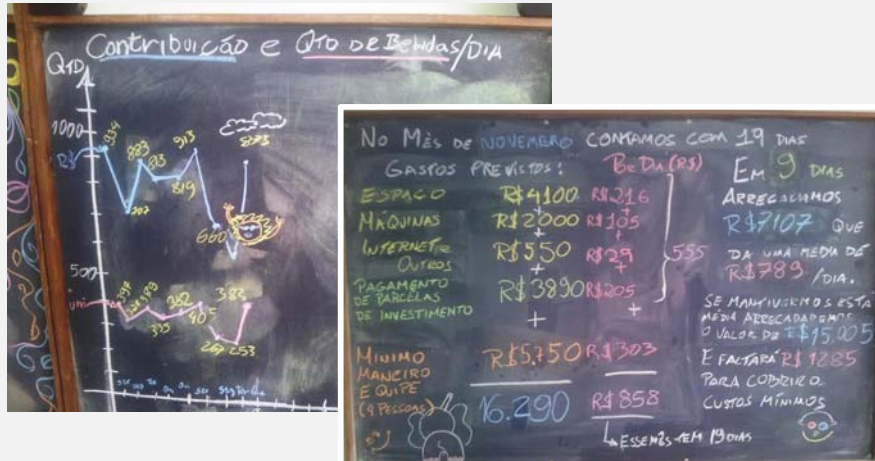 Contribuição e QTD DE Bebidas/DIA
QTD
1000
R$
934
883
813
819
913
660
873
500
uni
335
405
383
253
NO MÊS DE NOVEMBRO CONTAMOS COM 19 DIAS
GASTOS PREVISTOS:
POR DIA (R$)
ESPAÇO R$4100 R$216
+ +
MÁQUINAS R$2000 R$105
+ +
INTERNET E OUTROS R$550 R$29
+ +
555
PAGAMENTO
DE PARCELAS
DE INVESTIMENTO
R$3890 R$205
+ +
MINIMO
MANEIRO
EQUIPE
(9 PESSOAS)
R$5.750 R$303
16.290 R$858
ESSE MÊS TEM 19 DIAS
EM 9 DIAS
ARRECADAMOS
R$7107 QUE
DA UMA MEDIA DE
R$789 /DIA.
SE MANTIVERMOS ESTA
MÉDIA ARRECADAREMOS
O VALOR DE R$15.005
E FALTARÁ R$1285
PARA COBRIR O
CUSTOS MÍNIMOS